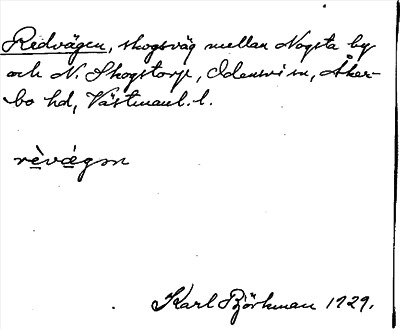 Ridvägen, skogsväg mellan Nogsta by
och N. Skogstorp, Odensvi sn, Åker-
bo hd, Västmanl. l.
rèvǽgən
Karl Björkman 1929.